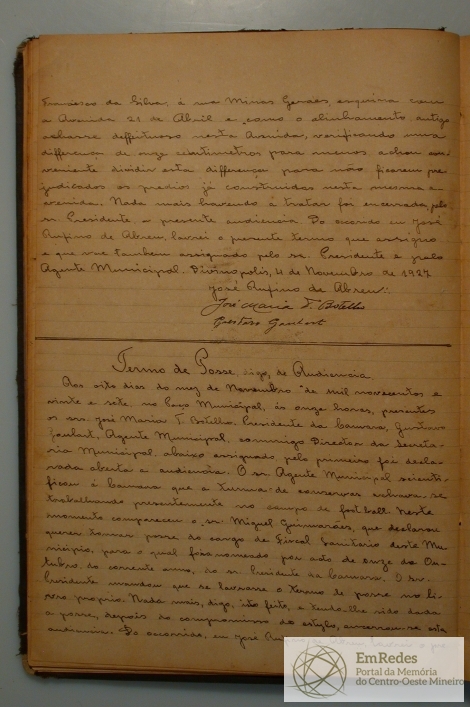 Francisco da Silva, á rua Minas Geraes, esquina com
a Avenida 21 de Abril e como o alinhamento antigo
achasse deffeituoso nesta Avenida, verificando uma
differença de onze centimetros para menos achou con-
veniente dividir esta differença para não ficarem pre-
judicados os predios já construidos nesta mesma a-
venida. Nada mais havendo á tratar foi encerrada pelo
sr. Presidente a presente audiencia. Do ocorido eu José
Rufino de Abreu, lavrei o presente termo que assigno
e que vae tambem assignado pelo sr. Presidente e pelo
Agente Municipal. Divinopolis, 4 de Novembro de 1927
José Rufino de Abreu.
José Maria T. Botelho
Gustavo Goulart
Termo de Posse, digo, de Audiencia
Aos oito dias do mez de Novembro de mil novecentos e
vinte e sete, no Paço Municipal, ás onze horas, presentes
os srs. José Maria T. Botelho Presidente da Camara, Gustavo
Goulart, Agente Municipal, commigo Director da Secreta-
ria Municipal, abaixo assignado, pelo primeiro foi decla-
rada aberta a audiencia. O sr. Agente Municipal scienti-
ficou á Camara que a turma de conservas estava-se
trabalhando presentemente no campo de foot-ball. Neste
momento compareceu o sr. Miguel Guimarães, que declarou
querer tomar posse do cargo de Fiscal Sanitario deste Mu-
nicipio, para o qual fôra nomeado por acto de onze de Ou-
tubro, do corrente anno, do sr. Presidente da Camara. O sr.
Presidente mandou que se lavrasse o termo de posse no li-
vro proprio. Nada mais, digo, isto feito, e tendo-lhe sido dada
a posse, depois do compromisso do estylo, encerrou-se esta
audiencia. Do ocorrido, eu José
EmRedes
Portal da Memória
do Centro-Oeste Mineiro